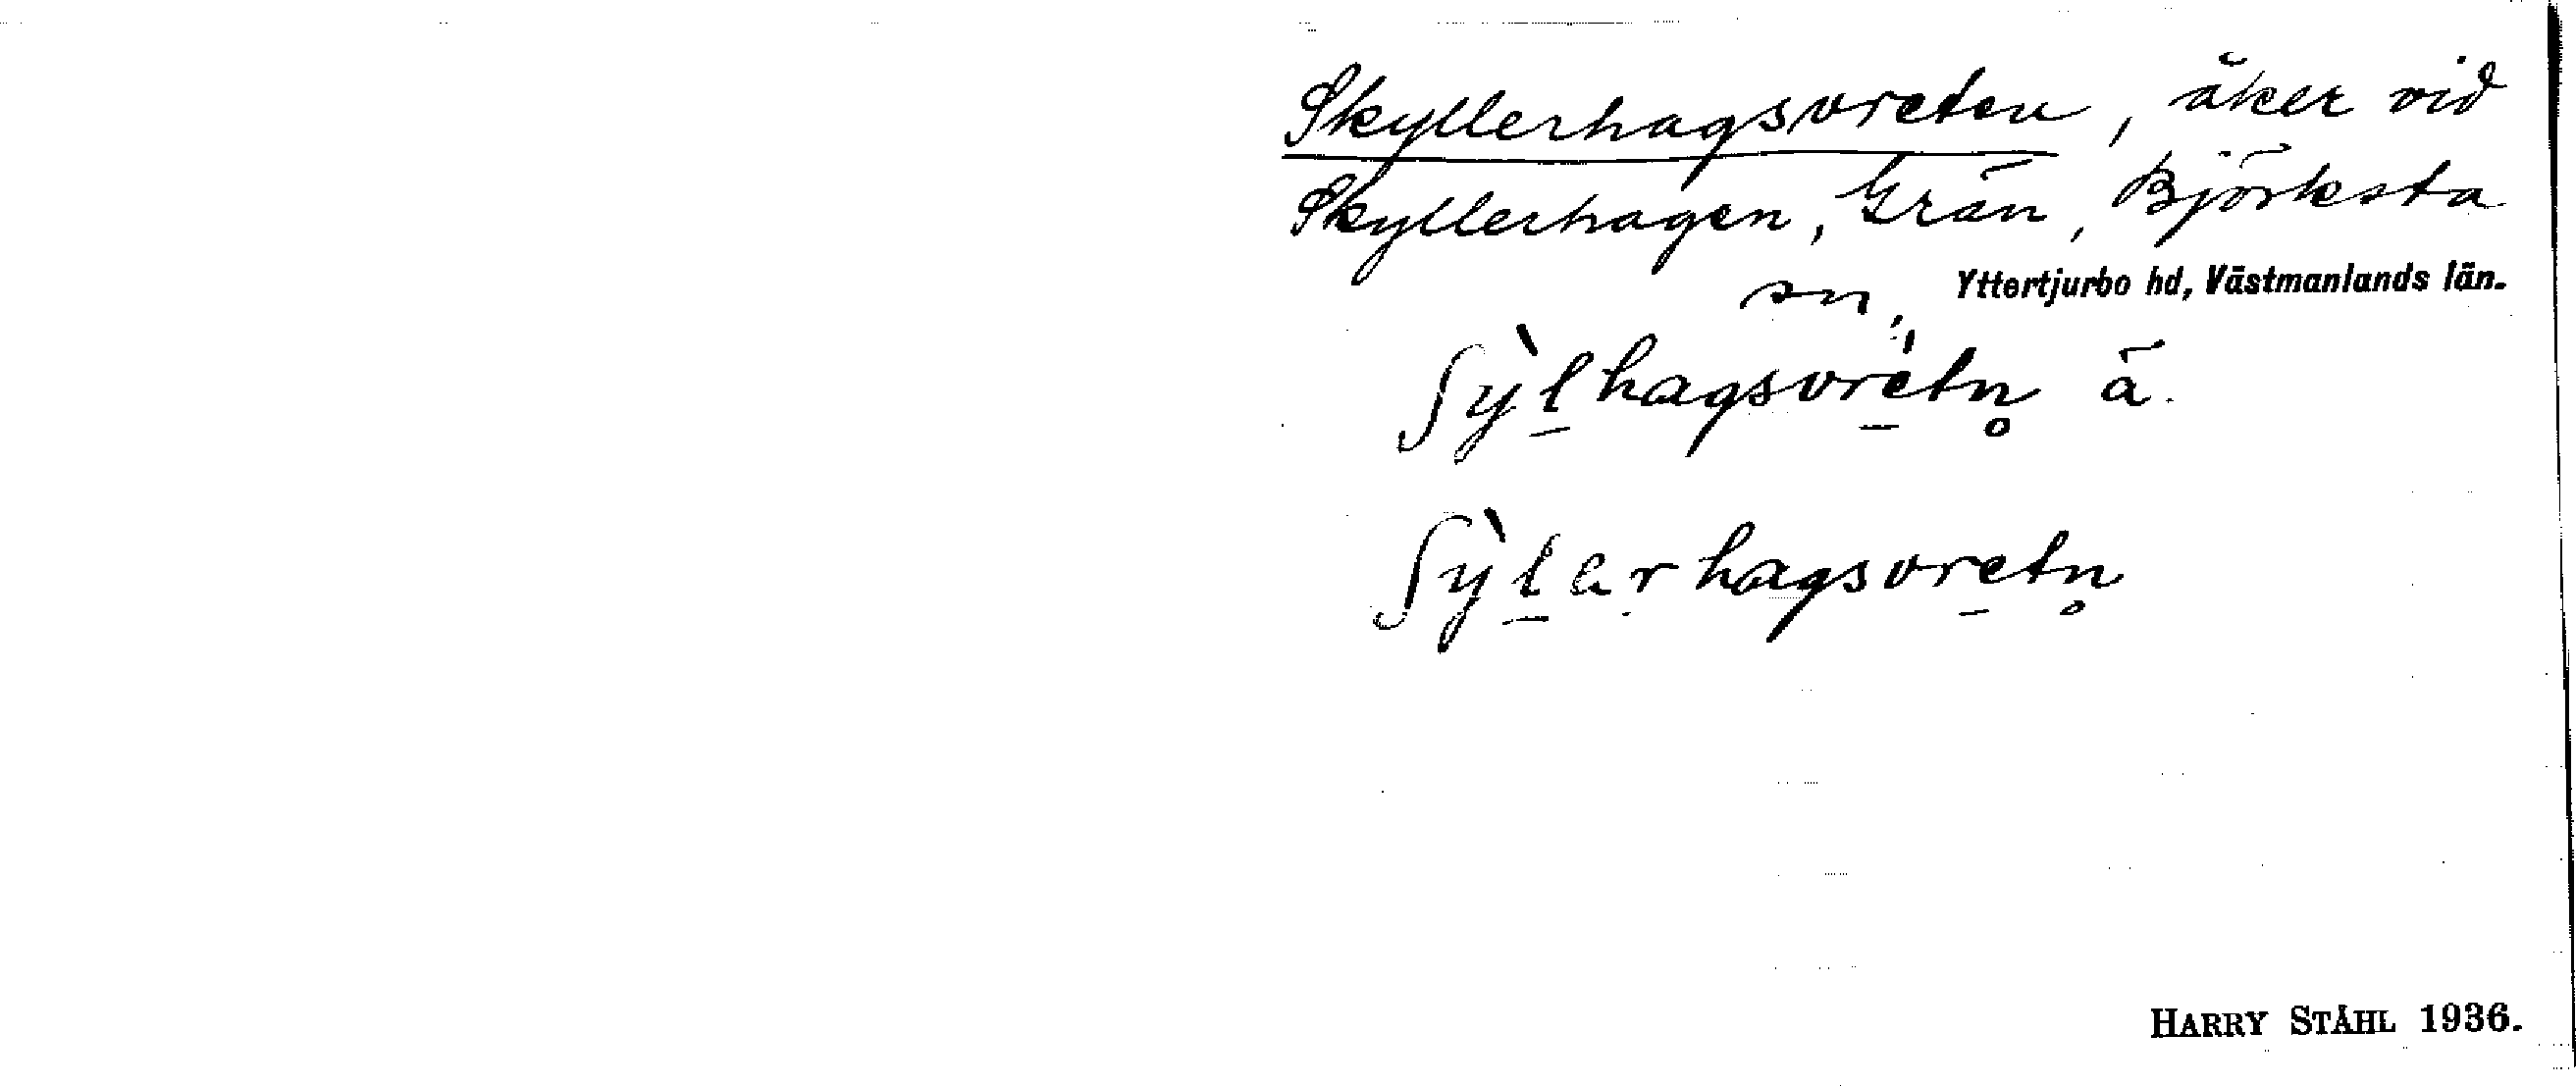 Skyllerhagsvreten, åker vid
Skyllerhagen, Grän, Björksta
sn, Yttertjurbo hd, Västmanlands län.
ʃỳl̠hagsvrè̠tn̥ ä.
ʃỳl̠ạrhagsvre̠tn̥
HARRY STÅHL 1936.